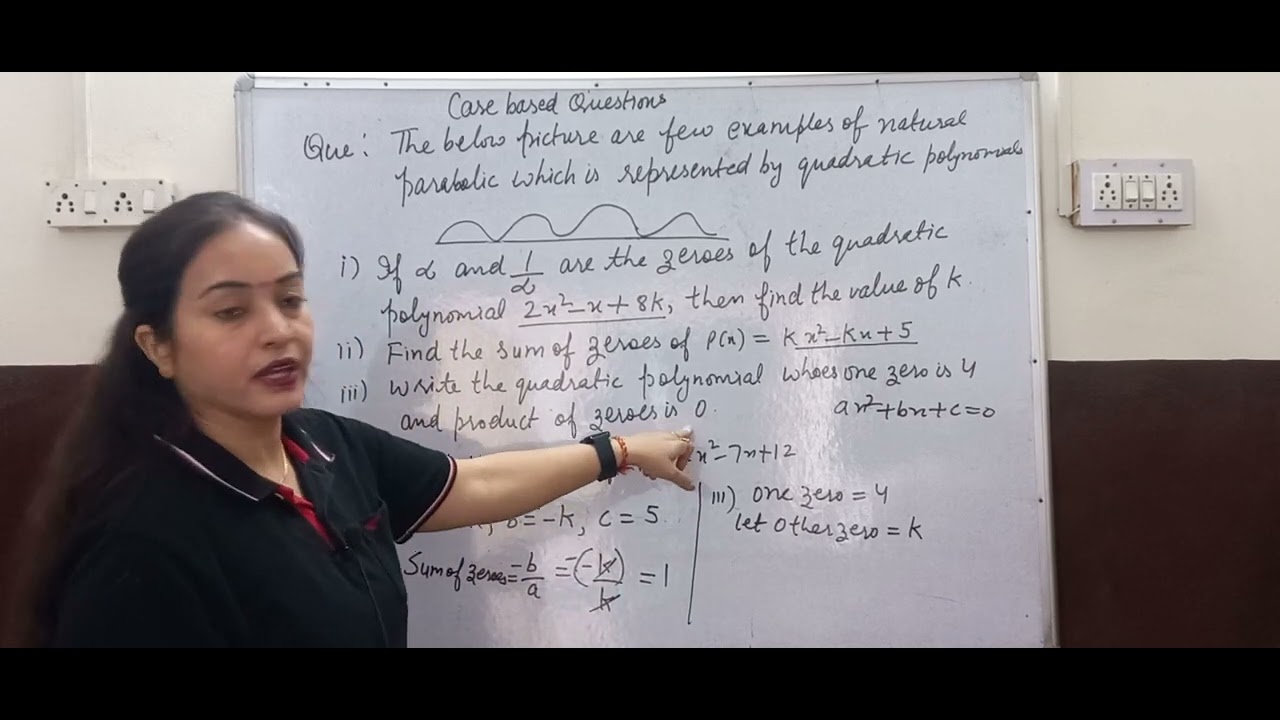 Case based Questions
Que: The below picture are few examples of natural
parabolic which is represented by quadratic polynomials
i) If α and 1/α are the zeroes of the quadratic
polynomial 2x²-x+8k, then find the value of k.
ii) Find the sum of zeroes of P(x) = kx²-kx+5
iii) Write the quadratic polynomial whoes one zero is 4
and product of zeroes is 0.
ax²+bx+c=0
x²-7x+12
b=-k, c=5
Sum of zeroes = -b/a = -(-k)/k = 1
iii) One zero = 4
let Other zero = k